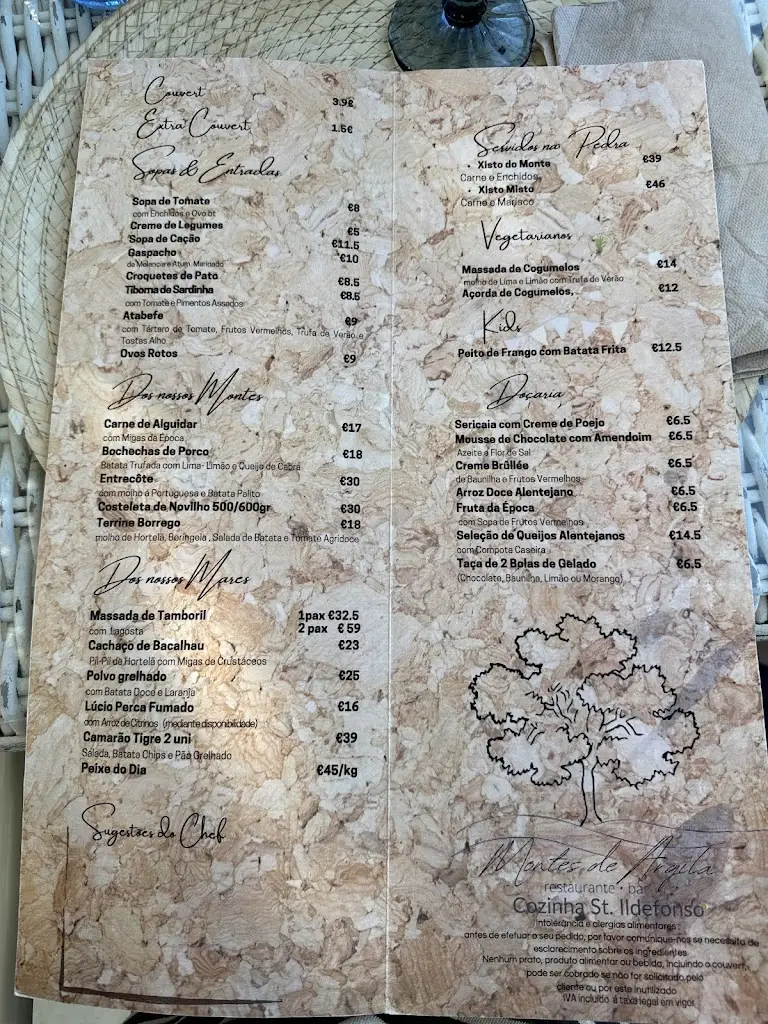 Couvert 3.9€
Extra Couvert 1.5€
Sopas & Entradas
Sopa de Tomate €8
com Enchidos e Ovo bt
Creme de Legumes €5
Sopa de Cação €11.5
Gaspacho €10
de Melancia e Atum Marinado
Croquetes de Pato €8.5
Tiborna de Sardinha €8.5
com Tomate e Pimentos Assados
Atabefe €9
com Tártaro de Tomate, Frutos Vermelhos, Trufa de Verão e
Tostas Alho
Ovos Rotos €9
Dos nossos Montes
Carne de Alguidar €17
com Migas da Época
Bochechas de Porco €18
Batata Trufada com Lima- Limão e Queijo de Cabra
Entrecôte €30
com molho á Portuguesa e Batata Palito
Costeleta de Novilho 500/600gr €30
Terrine Borrego €18
molho de Hortelã, Beringela , Salada de Batata e Tomate Agridoce
Dos nossos Mares
Massada de Tamboril 1pax €32.5
com Lagosta 2 pax € 59
Cachaço de Bacalhau €23
Pil-Pil de Hortelã com Migas de Crustáceos
Polvo grelhado €25
com Batata Doce e Laranja
Lúcio Perca Fumado €16
com Arroz de Citrinos (mediante disponibilidade)
Camarão Tigre 2 uni €39
Salada, Batata Chips e Pão Grelhado
Peixe do Dia €45/kg
Sugestões do Chef
Servidos na Pedra
• Xisto do Monte €39
Carne e Enchidos
• Xisto Misto €46
Carne e Marisco
Vegetarianos
Massada de Cogumelos €14
molho de Lima e Limão com Trufa de Verão
Açorda de Cogumelos, €12
Kids
Peito de Frango com Batata Frita €12.5
Doçaria
Sericaia com Creme de Poejo €6.5
Mousse de Chocolate com Amendoim €6.5
Azeite e Flor de Sal
Creme Brûllée €6.5
de Baunilha e Frutos Vermelhos
Arroz Doce Alentejano €6.5
Fruta da Época €6.5
com Sopa de Frutos Vermelhos
Seleção de Queijos Alentejanos €14.5
com Compota Caseira
Taça de 2 Bolas de Gelado €6.5
(Chocolate, Baunilha, Limão ou Morango)
Montes de Argila
restaurante · ba
Cozinha St. Ildefonso
Intolerância e alergias alimentares :
antes de efetuar o seu pedido, por favor comunique-nos se necessita de
esclarecimento sobre os ingredientes
Nenhum prato, produto alimentar ou bebida, incluindo o couvert,
pode ser cobrado se não for solicitado pelo
cliente ou por este inutilizado
IVA incluído á taxa legal em vigor